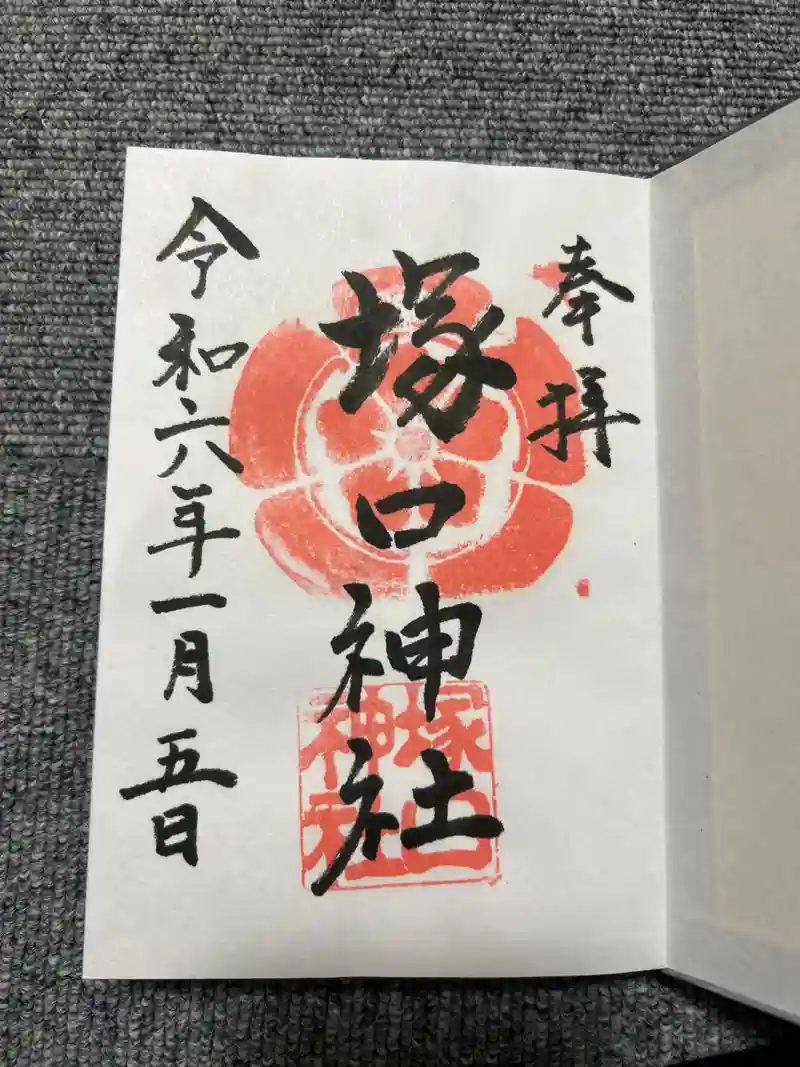 奉拝
塚口神社
塚口
神社
令和六年一月五日